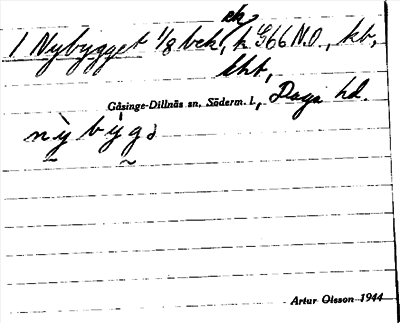 ek
1 Nybygget 1/8 bek, k G66 N.O., kb,
lhb,
Gåsinge-Dillnäs sn, Söderm. l., Daga hd.
nỳ bỳgə
Artur Olsson 1944